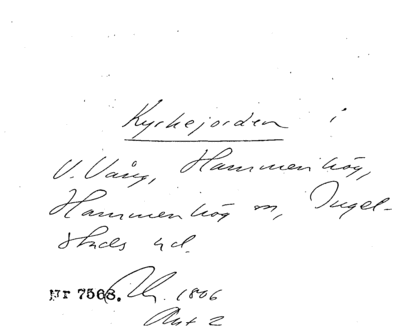 Kyrkejorden i
V. Vång, Hammenhög,
Hammenhög sn, Ingel-
stads hd.
Nr 7568. 1806
Akt 2